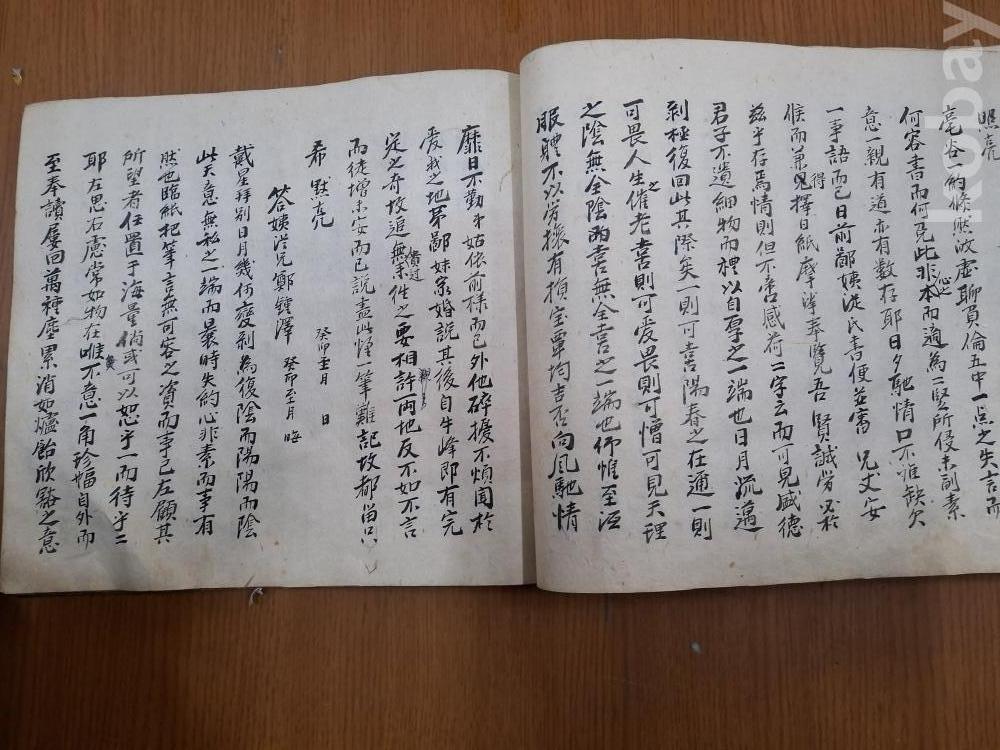 照亮
亳谷一約倏然被虛聊負倫五中一点之失言而
何容書而何免此非本心之而適為二竪所侵未副素
意二親有道亦有数存耶日夕馳情口不唯缺欠
一事語而已日前鄙姨從氏書便並審 兄丈安
候而兼得見擇日紙摩挲奉覽吾 賢誠勞必於
玆乎存焉情則但不啻感荷二字云而可見盛德
君子不遺細物而禮以自厚之一端也日月流邁
剝極復回此其際矣一則可喜陽春之在邇一則
可畏人生之催老喜則可爱畏則可憎可見天理
之陰無全陰而喜無全喜之一端也仰惟至沍
服體不以勞攘有損宝覃均吉否向風馳情
靡日不勤弟姑依前樣而已外他碎擾不煩聞於
爱我之地第鄙妹家婚說其後自牛峰即有完
定之奇故追無備過未件之要相許一両地反不如不言
而徒增未安而已說盡此懂一筆難記故都留只
希 默亮
癸卯至月 日
答姨從兄鄭鍾澤 癸卯至月 晦
戴星拜別日月幾何变剝為復陰而陽陽而陰
此天意無私之一端而最時失約心非素而事有
然也臨紙把筆言無可容之資而事已左顧其
所望者任置于海量倘或可以恕乎一而待乎二
耶左思右慮常如物在喉不意一角珍幅自外而
至奉讀屢回萬種塵累消如爐飴欣豁之意
kobay